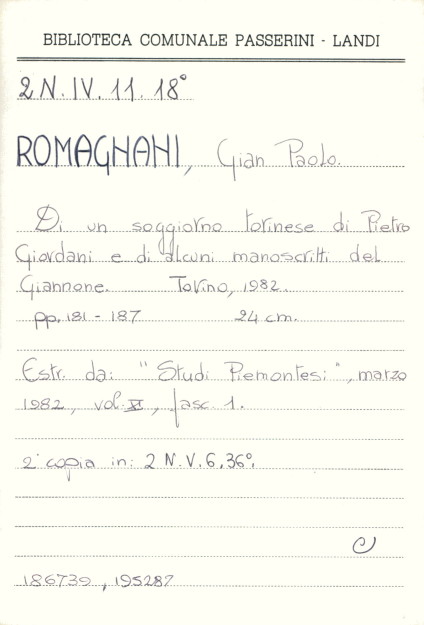 BIBLIOTECA COMUNALE PASSERINI - LANDI
2 N. IV. 11. 18°
ROMAGNANI, Gian Paolo.
Di un soggiorno torinese di Pietro
Giordani e di alcuni manoscritti del
Giannone. Torino, 1982.
pp. 181 - 187 24 cm.
Estr. da: "Studi Piemontesi", marzo
1982, vol. XI, fasc. 1.
2ª copia in: 2 N. V. 6. 36°.
186739, 195287